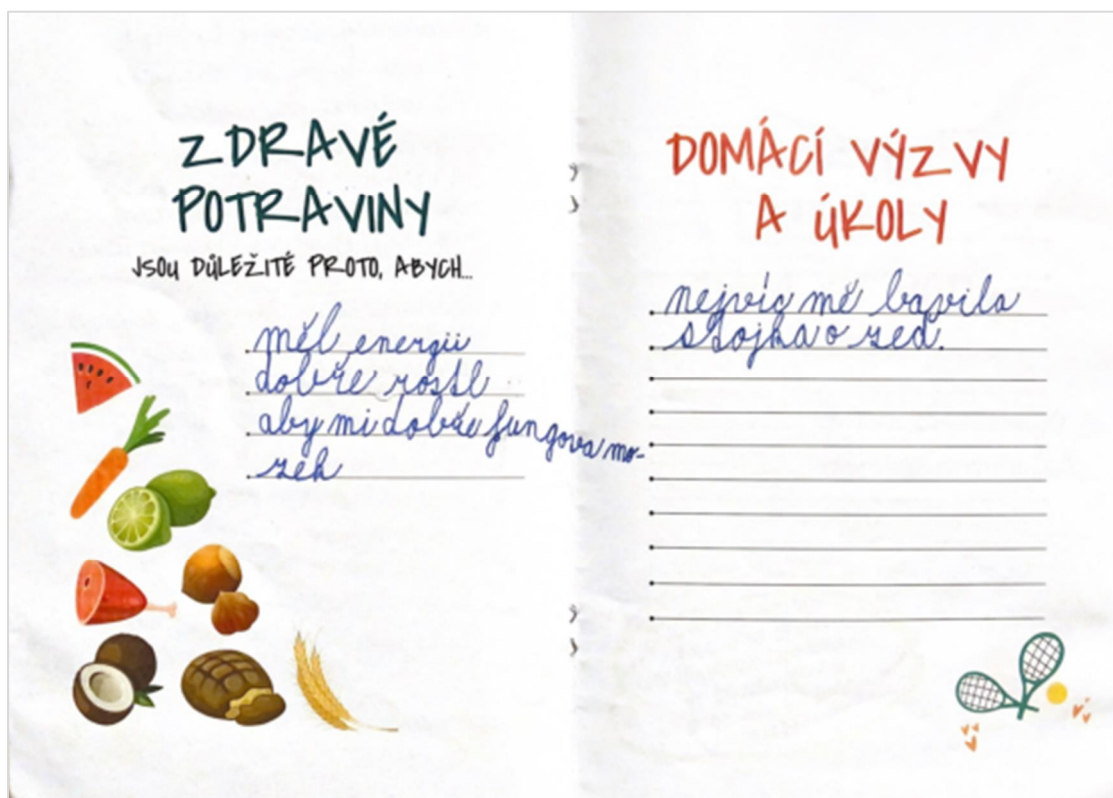 ZDRAVÉ
POTRAVINY
JSOU DŮLEŽITÉ PROTO, ABYCH...
měl energii
dobře rostl
aby mi dobře fungova mo-
zek
DOMÁCÍ VÝZVY
A ÚKOLY
nejvíc mě bavila
stojka o zed.